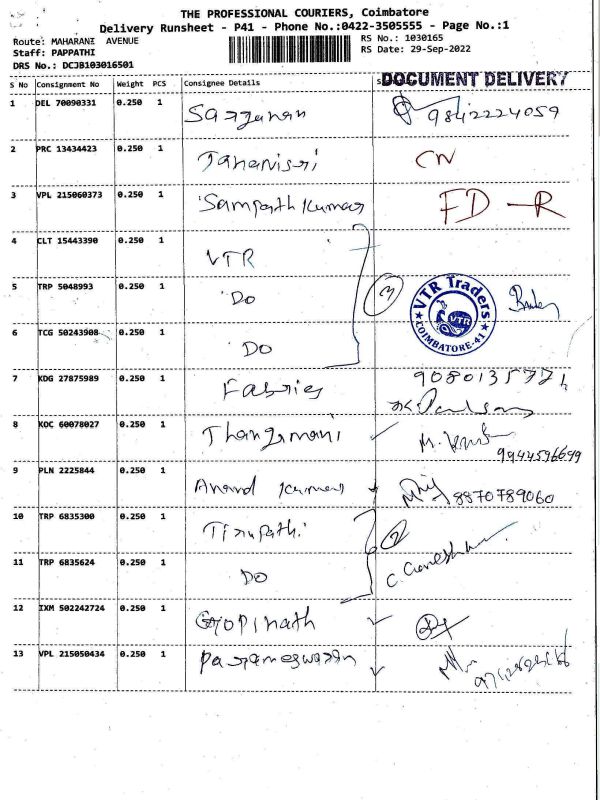 THE PROFESSIONAL COURIERS, Coimbatore
Delivery Runsheet - P41 - Phone No.:0422-3505555 - Page No.:1
Route: MAHARANI AVENUE RS No.: 1030165
Staff: PAPPATHI RS Date: 29-Sep-2022
DRS No.: DCJB103016501
DOCUMENT DELIVERY
S No Consignment No Weight PCS Consignee Details
1 DEL 70090331 0.250 1 9842224059
2 PRC 13434423 0.250 1 CW
3 VPL 215060373 0.250 1 Sampath Kumar FD-R
4 CLT 15443390 0.250 1 VTR
5 TRP 5048993 0.250 1 Do 3
VTR Traders
VTR
COIMBATORE-41
6 TCG 50243908 0.250 1 Do
7 KDG 27875989 0.250 1 Fabrics
8 KOC 60078027 0.250 1 Thangamani 9944596699
9 PLN 2225844 0.250 1 Anand Kumar 8870789060
10 TRP 6835300 0.250 1 Tirupathi 2
11 TRP 6835624 0.250 1 Do
12 IXM 502242724 0.250 1 Gopinath
13 VPL 215050434 0.250 1